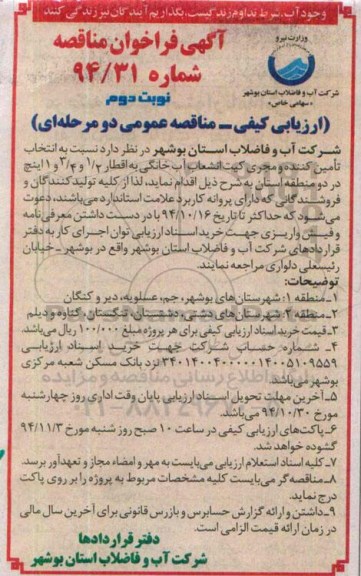 وجود آب، شرط تداوم زندگیست، بگذاریم آیندگان نیز زندگی کنند
آگهی فراخوان مناقصه
شماره ۹۴/۳۱
نوبت دوم
وزارت نیرو
شرکت آب و فاضلاب استان بوشهر
«سهامی خاص»
(ارزیابی کیفی - مناقصه عمومی دو مرحله‌ای)
شرکت آب و فاضلاب استان بوشهر در نظر دارد نسبت به انتخاب
تأمین کننده و مجری کیت انشعاب آب خانگی به اقطار ۱/۲ و ۳/۴ و ۱ اینچ
در دو منطقه استان به شرح ذیل اقدام نماید، لذا از کلیه تولیدکنندگان و
فروشندگانی که دارای پروانه کاربرد علامت استاندارد می‌باشند، دعوت
می‌شود که حداکثر تا تاریخ ۹۴/۱۰/۱۶ با در دست داشتن معرفی‌نامه
و فیش واریزی جهت خرید اسناد ارزیابی توان اجرای کار به دفتر
قراردادهای شرکت آب و فاضلاب استان بوشهر واقع در بوشهر - خیابان
رئیسعلی دلواری مراجعه نمایند.
توضیحات:
۱- منطقه ۱: شهرستان‌های بوشهر، جم، عسلویه، دیر و کنگان
۲- منطقه ۲: شهرستان‌های دشتی، دشتستان، تنگستان، گناوه و دیلم
۳- قیمت خرید اسناد ارزیابی کیفی برای هر پروژه مبلغ ۱۰۰/۰۰۰ ریال می‌باشد.
۴- شماره حساب شرکت جهت خرید اسناد ارزیابی
نزد بانک مسکن شعبه مرکزی
بوشهر می‌باشد.
۵- آخرین مهلت تحویل اسناد ارزیابی پایان وقت اداری روز چهارشنبه
مورخ ۹۴/۱۰/۳۰ می‌باشد.
۶- پاکت‌های ارزیابی کیفی در ساعت ۱۰ صبح روز شنبه مورخ ۹۴/۱۱/۳
گشوده خواهد شد.
۷- کلیه اسناد استعلام ارزیابی می‌بایست به مهر و امضاء مجاز و تعهدآور برسد.
۸- مناقصه‌گر می‌بایست کلیه مشخصات مربوط به پروژه را بر روی پاکت
درج نماید.
۹- داشتن و ارائه گزارش حسابرس و بازرس قانونی برای آخرین سال مالی
در زمان ارائه قیمت الزامی است.
دفتر قراردادها
شرکت آب و فاضلاب استان بوشهر